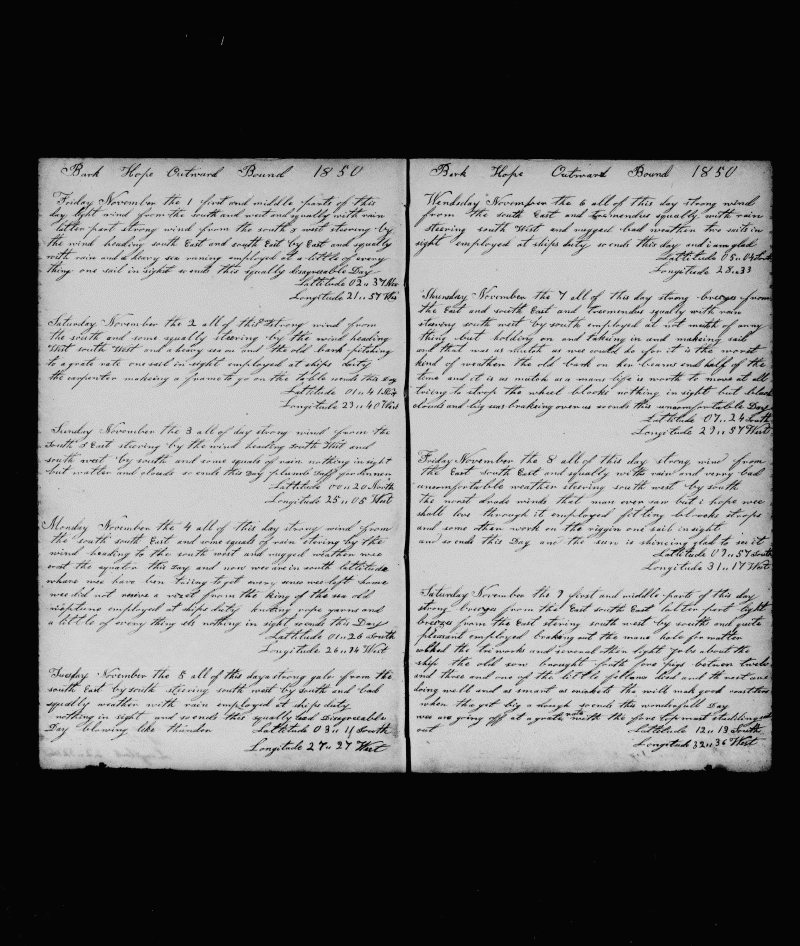 Bark Hope Outward Bound 1850
Friday November the 1 first and middle parts of this
day light wind from the south and west and squally with rain
latter part strong wind from the south s west steering by
the wind heading south East and south East by East and squally
with rain and a heavy sea runing employed at a little of every
thing one sail in sight so ends this squally disagreeable Day
Lattitude 02 " 37
Longitude 21 " 57
Saturday November the 2 all of this strong wind from
the south and some squally steering by the wind heading
West south West and a heavy sea on and the old bark pitching
to a grate rate one sail in sight employed at ships duty
the carpenter makeing a frame to go on the table so ends this Day
Lattitude 01 " 41
Longitude 23 " 40 West
Sunday November the 3 all of day strong wind from the
South S East steering by the wind heading south West and
south west by south and some squals of rain nothing in sight
but watter and clouds so ends this Day plumb duff for dinner
Lattitude 00 " 20 North
Longitude 25 " 05 West
Monday November the 4 all of this day strong wind from
the south south East and some squals of rain stering by the
wind heading to the south west and rugged weather wee
crost the equator this Day and now wee are in south lattitude
whare wee have ben triing to get every sence wee left home
wee did not reseive a visit from the king of the sea old
neptune employed at ships duty knoting rope yarns and
a little of everything els nothing in sight so ends this Day
Lattitude 01 " 26 South
Longitude 26 " 14 West
Tuesday November the 5 all of this day a strong gale from the
south East by south steering south west by south and bad
squally weather with rain employed at ships duty
nothing in sight and so ends this squally bad Disagreeable
Day blowing like thunder Lattitude 03 " 11 South
Longitude 27 " 27 West
Bark Hope Outward Bound 1850
Wendsday November the 6 all of this day strong wind
from the south East and tremendus squally with rain
steering south West and rugged bad weather two sails in
sight employed at ships duty so ends this day and i am glad
Lattitude 05 " 04 South
Longitude 28 " 33
Thursday November the 7 all of this day strong breezes from
the East and south East and tremendus squally with rain
steering south west by south employed at not mutch of anny
thing but holding on and takeing in and makeing sail
and that was as mutch as wee could do for it is the worst
kind of weather the old bark on her beams end half of the
time and it is as mutch as a mans life is worth to move at all
triing to strop the wheel blocks nothing in sight but black
clouds and big seas brakeing over us so ends this uncomfortable Day
Lattitude 07 " 24 South
Longitude 29 " 57 West
Friday November the 8 all of this day strong wind from
the East south East and squally with rain and verry bad
uncomfortable weather steering south west by south
the worst trade winds that man ever saw but i hope wee
shall live through it employed fitting blocks strops
and some other work on the riggin one sail in sight
and so ends this Day and the sun is shineing glad to see it
Lattitude 09 " 57 South
Longitude 31 " 17 West
Saturday November the 9 first and middle parts of this day
strong breezes from the East south East latter part light
breezes from the East stering south west by south and quite
pleasant employed brakeing out the mane hole for watter
the tri works and severial other light jobs about the
ship the old sow brought forth five pigs between twelve
and three and one of the little fellows died and the rest are
doing well and as smart as crickets tha will make good roasters
when tha get big a dough so ends this wonderfull Day
wee are going off at a grate rate with the fore top mast studding sail
out Lattitude 12 " 13 South
Longitude 32 " 36 West